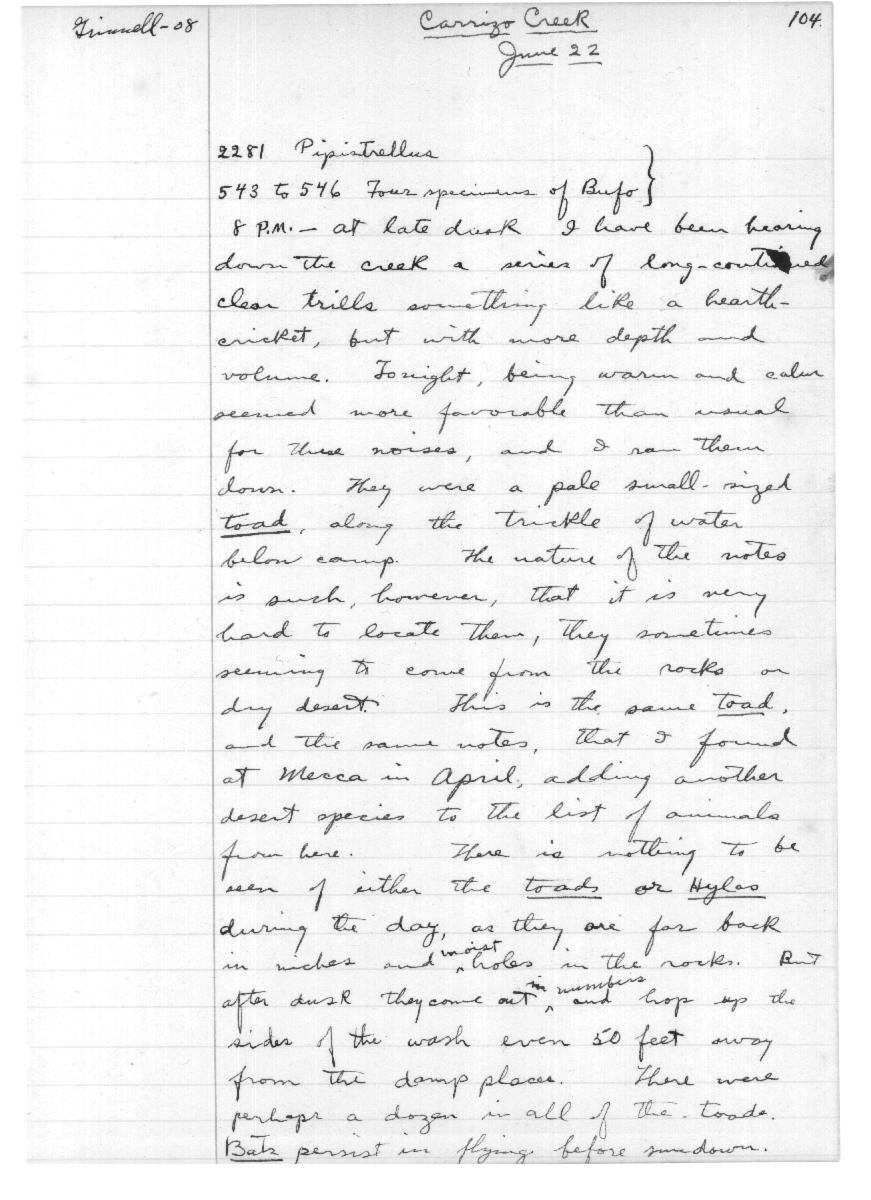 Grinnell-08
Carrizo Creek
104
June 22
2281 Pipistrellus
543 to 546 Four specimens of Bufo }
8 P.M. — at late dusk I have been hearing
down the creek a series of long-continued
clear trills something like a hearth-
cricket, but with more depth and
volume. Tonight, being warm and calm
seemed more favorable than usual
for these noises, and I ran them
down. They were a pale small-sized
toad, along the trickle of water
below camp. The nature of the notes
is such, however, that it is very
hard to locate them, they sometimes
seeming to come from the rocks or
dry desert. This is the same toad,
and the same notes, that I found
at Mecca in April, adding another
desert species to the list of animals
from here. There is nothing to be
seen of either the toads or Hylas
during the day, as they are far back
in niches and ^moist holes in the rocks. But
after dusk they come out ^in numbers and hop up the
sides of the wash even 50 feet away
from the damp places. There were
perhaps a dozen in all of the toads.
Bats persist in flying before sundown.